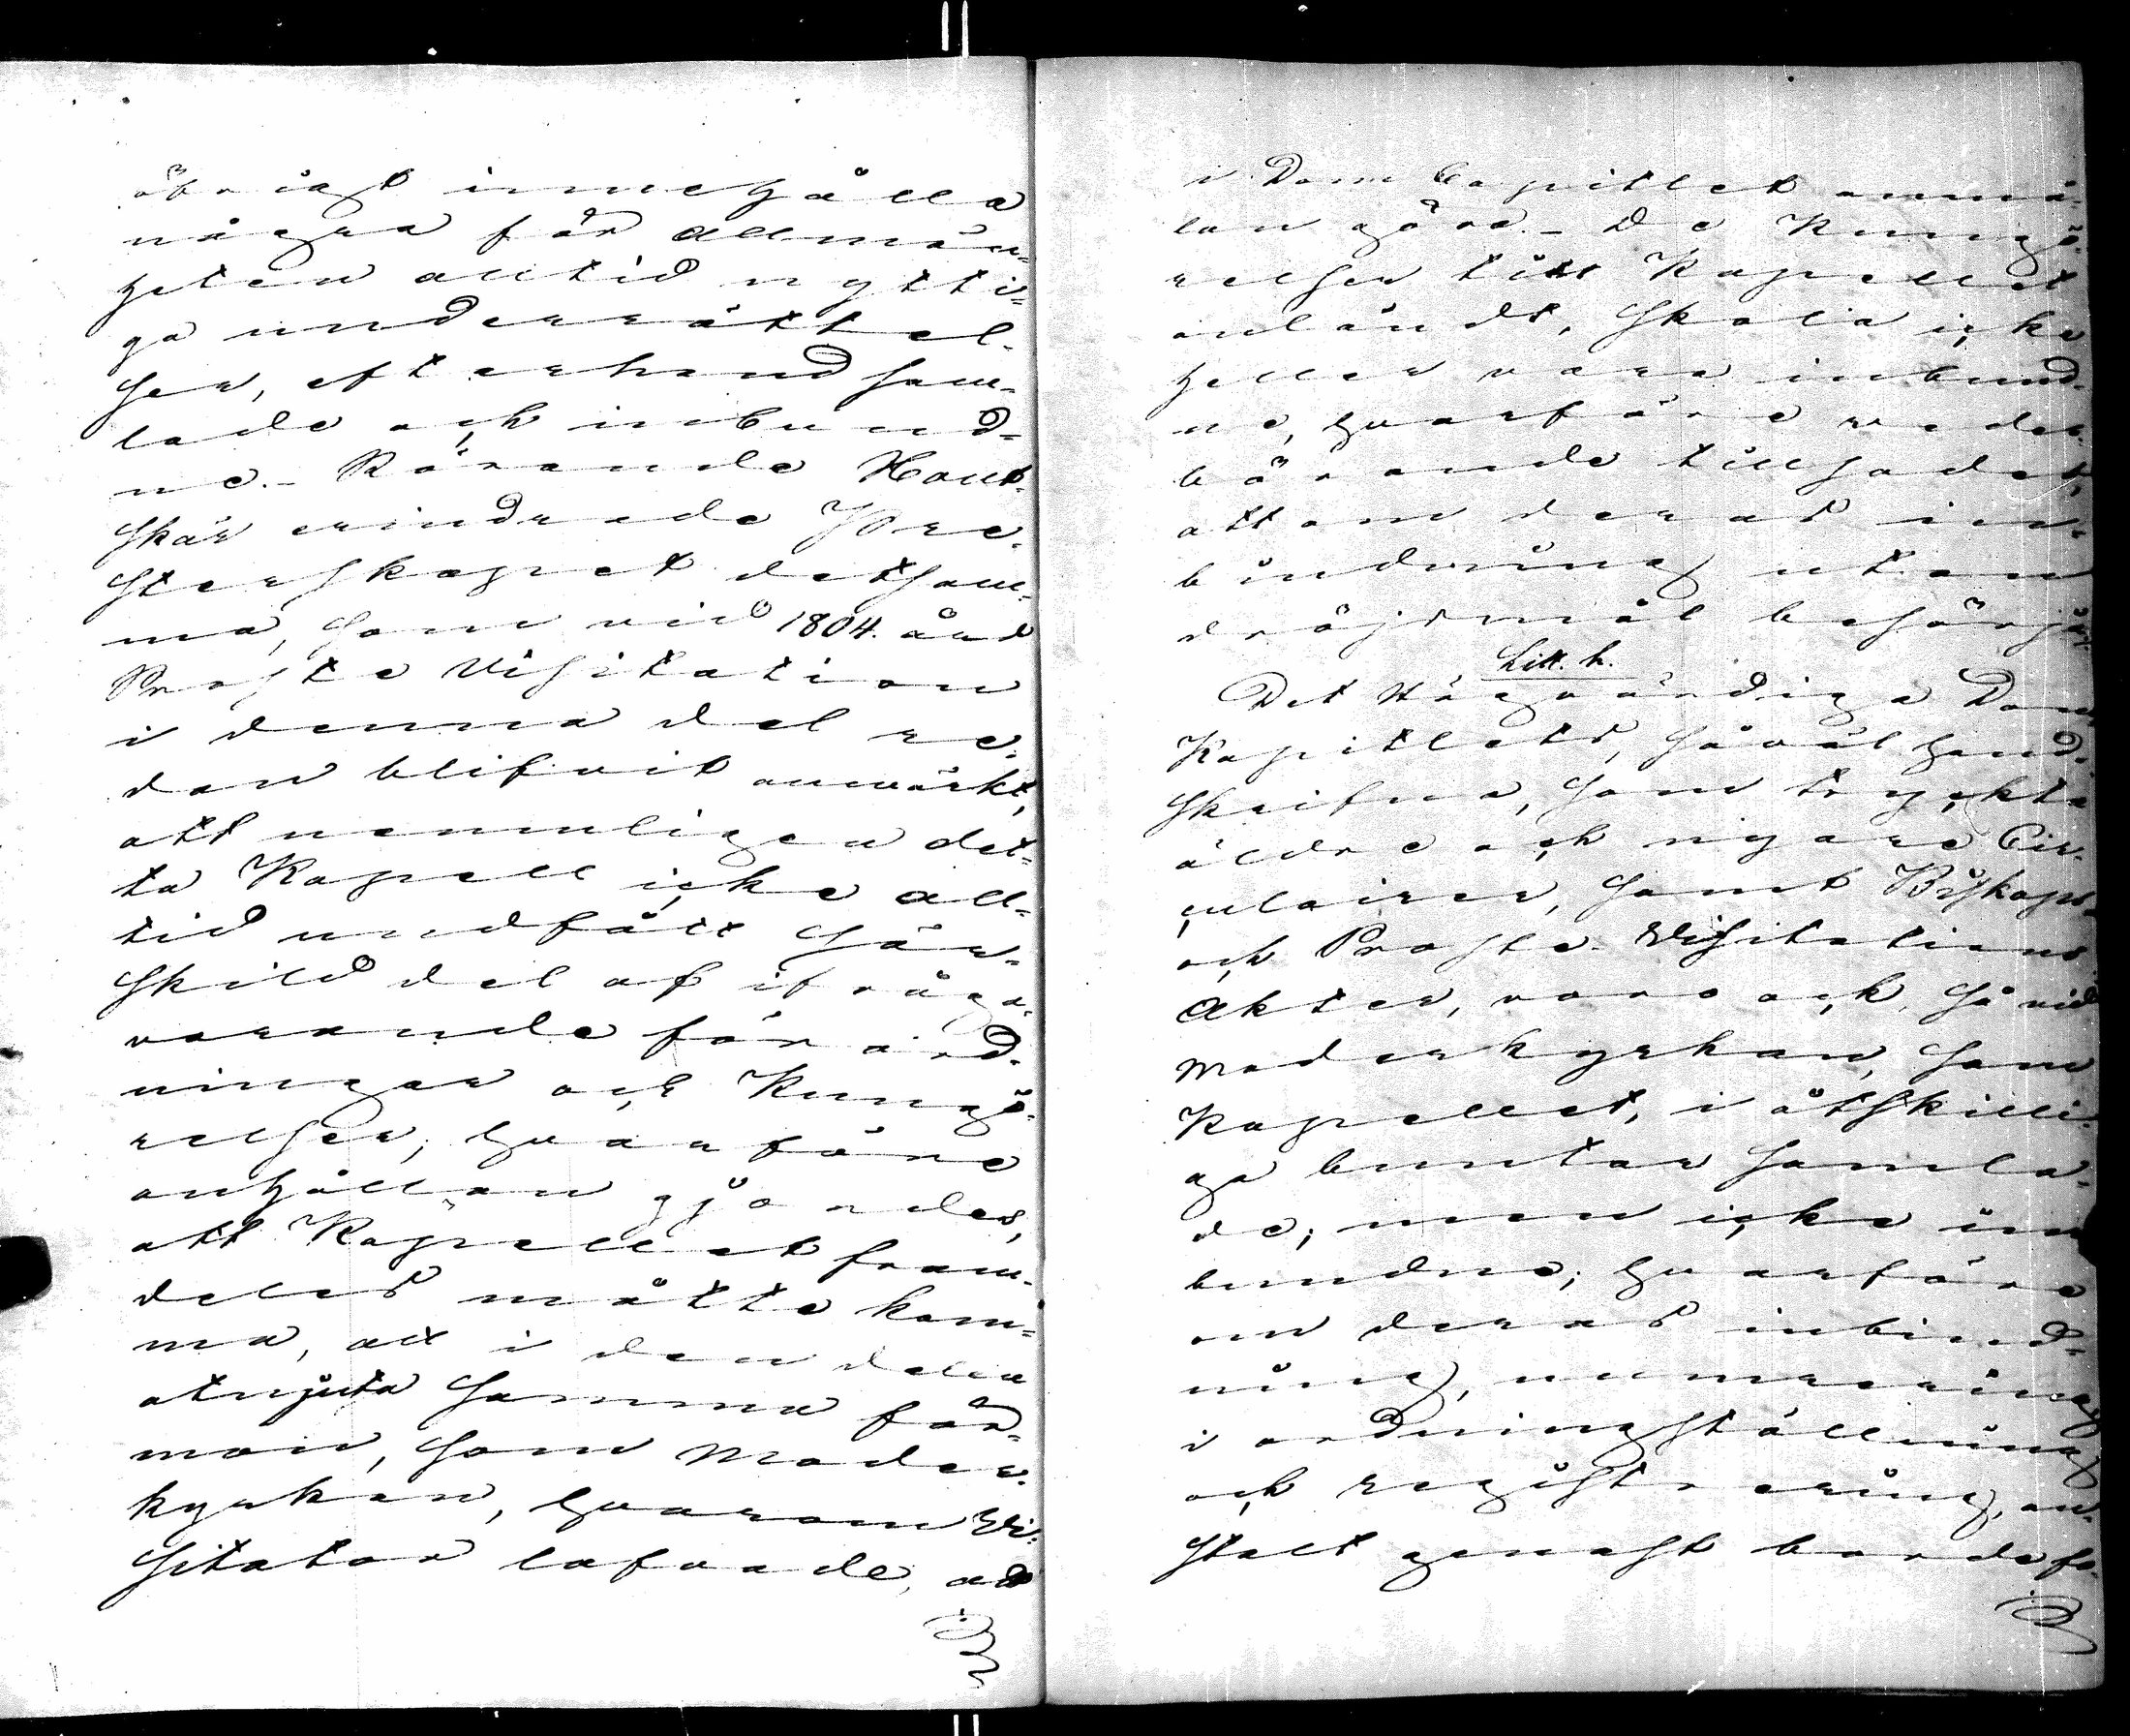 öfrigt innehålla
några för Allmän-
heten alltid nytti-
ga underrättel-
ser, efterhand sam-
lade och inbund-
ne. - Rörande Hout-
skär erindrade Pre-
sterskapet detsam-
ma, som vid 1804 års
Proste Visitation
i denna del re-
dan blifvit anmärkt,
att nemnligen det-
ta Kapell icke all-
tid undfått sär-
skild del af ifråga-
varande förord-
ningar och Kungö-
relser, hvarföre
anhållan gjordes,
att Kapellet fram-
deles måtte kom-
ma, att i den delen
åtnjuta samma för-
mon, som Moder-
kyrkan, hvarom Vi-
sitator lofvade, att
i Dom Capitlet anmä-
lan göra. - De Kungö-
relser till Kapellet
anländt, skola icke
heller vara inbund-
ne, hvarföre veder-
börande tillsades,
att om deras in-
bindning utan
dröjsmål besörja.
Litt. h.
Det Högvördiga Dom
Kapitlets, såväl hand-
skrifna, som tryckta
äldre och nyare Cir-
culairer, samt Biskops-
och Proste Visitations
Akter, voro ock, så vid
Moderkyrkan, som
Kapellet, i åtskilli-
ga buntar samla-
de; men icke in-
bundne; hvarföre
om deras inbind-
ning, numrering
i ordningställning
och registrering, an-
stalt genast borde fo-